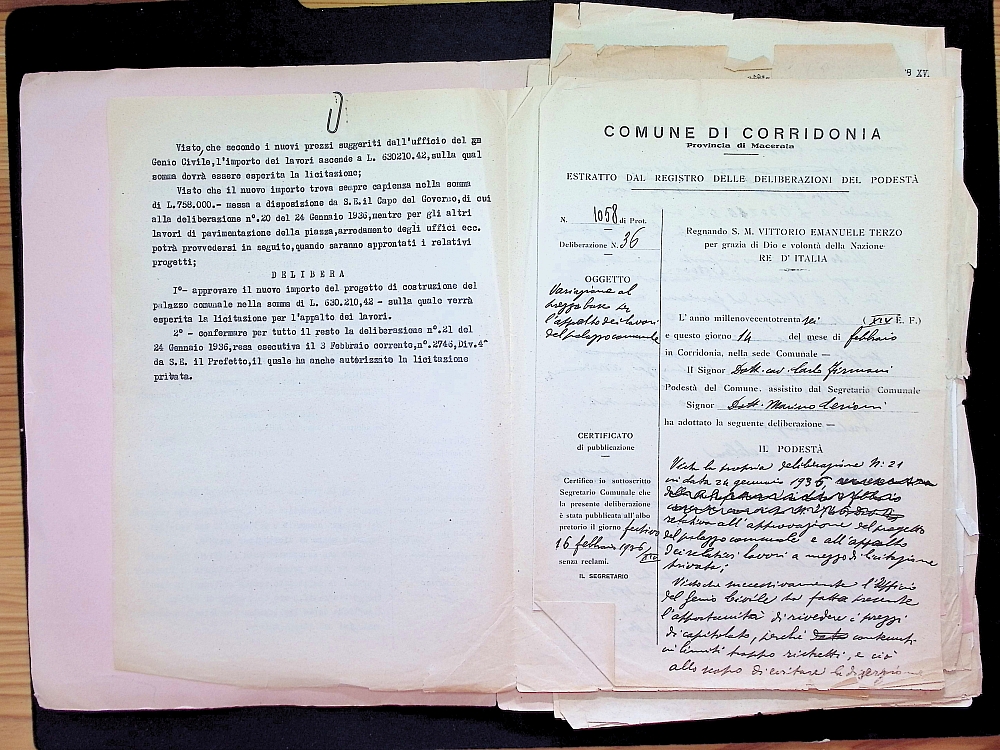 Visto,che secondo i nuovi prezzi suggeriti dall'ufficio del gm
Genio Civile,l'importo dei lavori ascende a L. 630210.42,sulla qual
somma dovrà essere esperita la licitazione;
Visto che il nuovo importo trova sempre capienza nella somma
di L.758.000.- messa a disposizione da S.E.il Capo del Governo,di cui
alla deliberazione n°.20 del 24 Gennaio 1936,mentre per gli altri
lavori di pavimentazione della piazza,arredamento degli uffici ecc.
potrà provvedersi in seguito,quando saranno approntati i relativi
progetti;
D E L I B E R A
I°- approvare il nuovo importo del progetto di costruzione del
palazzo comunale nella somma di L. 630.210,42 - sulla quale verrà
esperita la licitazione per l'appalto dei lavori.
2° - confermare per tutto il resto la deliberazione n°.21 del
24 Gennaio 1936,resa esecutiva il 3 Febbraio corrente,n°.2746,Div.4^
da S.E. il Prefetto,il quale ha anche autorizzato la licitazione
privata.
XV.
COMUNE DI CORRIDONIA
Provincia di Macerata
ESTRATTO DAL REGISTRO DELLE DELIBERAZIONI DEL PODESTÀ
N. 1058 di Prot.
Deliberazione N. 36
OGGETTO
Variazione al
prezzo base per
l'appalto dei lavori
del palazzo comunale
CERTIFICATO
di pubblicazione
Certifico io sottoscritto
Segretario Comunale che
la presente deliberazione
è stata pubblicata all'albo
pretorio il giorno festivo
16 febbraio 1936/XIV
senza reclami.
IL SEGRETARIO
Regnando S. M. VITTORIO EMANUELE TERZO
per grazia di Dio e volontà della Nazione
RE D'ITALIA
L'anno millenovecentotrenta sei (XIV E. F.)
e questo giorno 14 del mese di febbraio
in Corridonia, nella sede Comunale —
Il Signor Dott. cav. Carlo Firmani
Podestà del Comune, assistito dal Segretario Comunale
Signor Dott. Marino
ha adottato la seguente deliberazione —
IL PODESTÀ
Vista la propria deliberazione N. 21
in data 24 gennaio 1936
relativa all'approvazione del progetto
del palazzo comunale e all'appalto
dei relativi lavori a mezzo di licitazione
privata;
Visto che successivamente l'Ufficio
del Genio Civile ha fatto presente
l'opportunità di rivedere i prezzi
di capitolato, perché contenuti
in limiti troppo ristretti, e ciò
allo scopo di evitare la diserzione